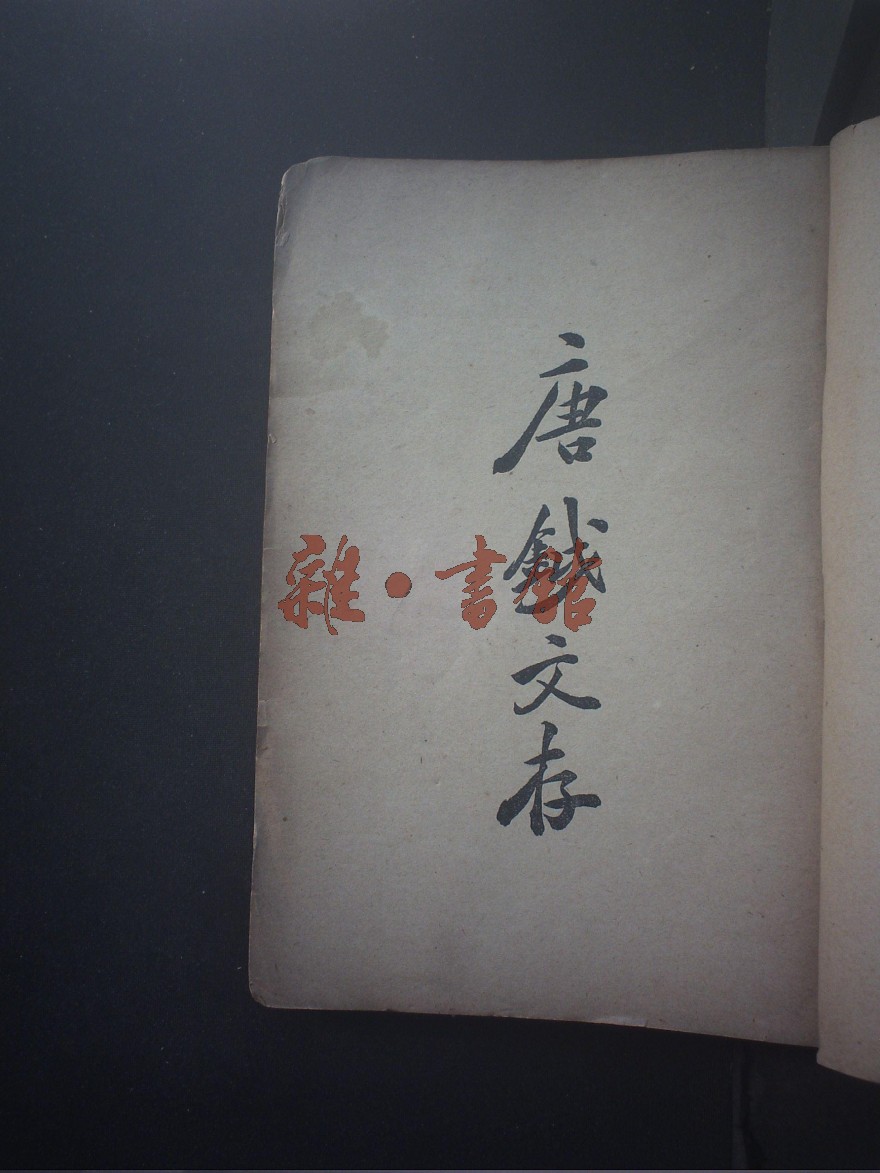 唐鉞文存
雜·書館